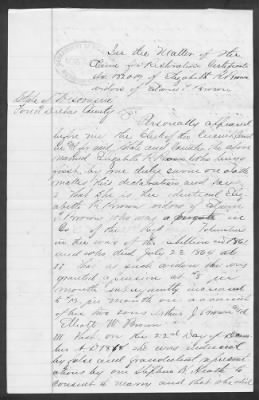 In the Matter of the
Claim for Restoration Certificate
No 132009 of Elizabeth R Brown
widow of Edwin T Brown
State of Wisconsin
Fond du Lac County
Personally appeared
before me the Clerk of the Circuit Court
in & for said State and County the above
named Elizabeth R Brown who being
first by me duly sworn on oath
makes this declaration and says
That she is the identical Eliz
abeth R Brown widow of Edwin
T Brown who was a private in
Co of the Regt Volunteer
in the war of the rebellion in 1861
and who died July 22 1864
II That as such widow she was
granted a pension at $8 per
month subsequently increased
to per month on account
of her two sons Arthur J Brown and
Elliott W Brown
III That on the 22nd Day of
A D 18 she was induced
by false and fraudulent represent
ations by one Stephen R Heath to
consent to marry and that she did